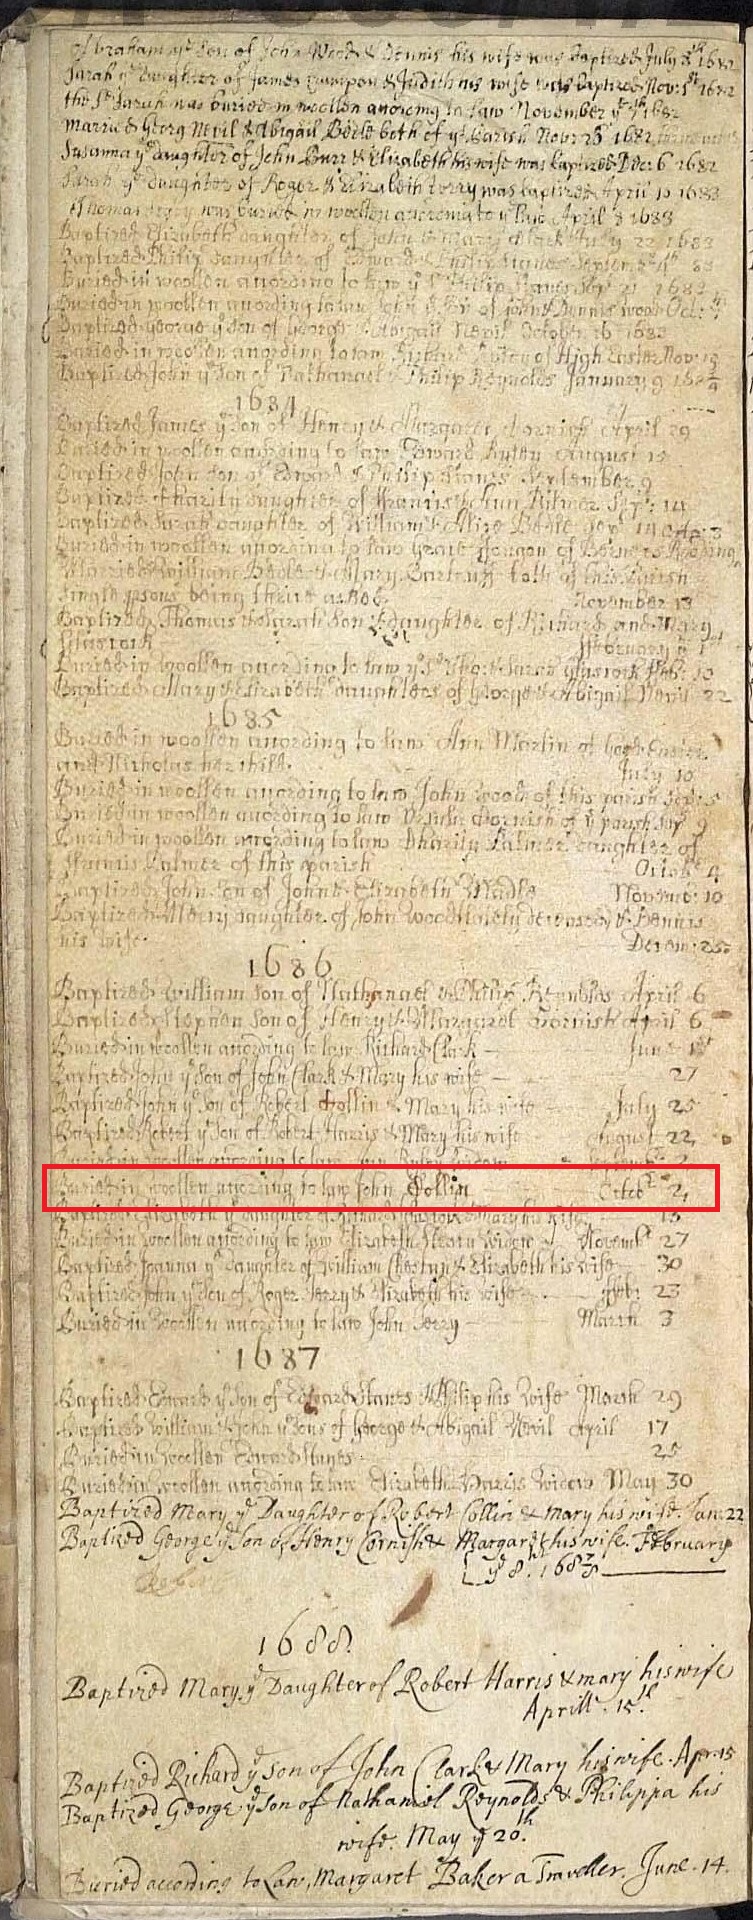 Abraham ye Son of John Wood & Dennis his wife was baptized July 1682
Sarah ye Daughter of James & Judith his wife was baptized Nov: 1st 1682
the sd Sarah was buried in woollen according to law November ye 1682
Maried Georg Nevil & Abigail Beele both of ye Parish Nov: 1682
Susanna ye daughter of John Burr & Elizabeth his wife was baptized Dec: 6 1682
Sarah ye daughter of Roger & Elizabeth was baptized April 10 1683
Thomas was buried in woollen according to ye law April 8 1683
Baptized Elizabeth daughter of John & Mary Clark July 22 1683
Baptized Philip daughter of Edward & Philip Septem: 83
Buried in woollen according to law ye sd Philip 1683
Buried in woollen according to law John ye son of John & Dennis wood Oct:
Baptized George ye Son of George & Abigail Nevil October 16 1683
Buried in woollen according to law of High Easter Nov:
Baptized John ye Son of Nathanael & Philip Reynolds January 9 168¾
1684
Baptized James ye Son of Henry & Margaret Cornish April 29
Buried in woollen according to law Edward August 15
Baptized John Son of Edward & Philip Stanes September 9
Baptized Charity daughter of Francis & Ann Sept: 14
Baptized Sarah daughter of William & Alice Sept 14 Octo: 3
Buried in woollen according to law of Berners Rooding
Married William & Mary both of this Parish
Single psons being thrice asked. November 13
Baptized Thomas & Sarah Son & daughter of Richard and Mary
Glascock February ye 1st
Buried in woollen according to law ye sd Tho: & Sarah Glascock Feb: 10
Baptized Mary & Elizabeth daughters of George & Abigail Nevil 22
1685
Buried in woollen according to law Ann Martin of good Easter
and Nicholas her child. July 10
Buried in woollen according to law John wood of this parish Sep: 5
Buried in woollen according to law Ursula Cornish of ye parish Sep 9
Buried in woollen according to law Charity Palmer daughter of
Francis Palmer of this parish Octob: 4
Baptized John Son of John & Elizabeth Novemb: 10
Baptized Mercy daughter of John wood lately deceased & Dennis
his wife. Decem: 25
1686
Baptized William Son of Nathanael & Philip Reynolds April 6
Baptized Stephen Son of Henry & Margaret Cornish April 6
Buried in woollen according to law Richard Clark June
Baptized John ye Son of John Clark & Mary his wife 27
Baptized John ye Son of Robert Collin & Mary his wife July 25
Baptized Robert ye Son of Robert Harris & Mary his wife August 22
Buried in woollen according to law widow Septemb: 2
Buried in woollen according to law John Collin Octob: 2
Baptized Elizabeth ye daughter of Richard Glascock & Mary his wife 13
Buried in woollen according to law Elizabeth widow Novemb: 27
Baptized Joanna ye Daughter of William & Elizabeth his wife 30
Baptized John ye Son of Roger Terry & Elizabeth his wife Feb: 23
Buried in woollen according to law John Terry March 3
1687
Baptized Edward ye Son of Edward Stanes & Philip his wife March 29
Baptized William & John ye Sons of George & Abigail Nevil April 17
Buried in woollen Edward Stanes 25
Buried in woollen according to law Elizabeth Harris Widow May 30
Baptized Mary ye Daughter of Robert Collin & Mary his wife. Jan: 22
Baptized George ye Son of Henry Cornish & Margaret his wife. February
ye 8th. 168⅞
Robert
1688.
Baptized Mary, ye Daughter of Robert Harris & mary his wife
Aprill. 15th.
Baptized Richard ye Son of John Clark & Mary his wife. Apr: 15
Baptized George ye son of Nathaniel Reynolds & Philippa his
wife. May ye 20th.
Buried according to Law, Margaret Baker a Traveller. June. 14.